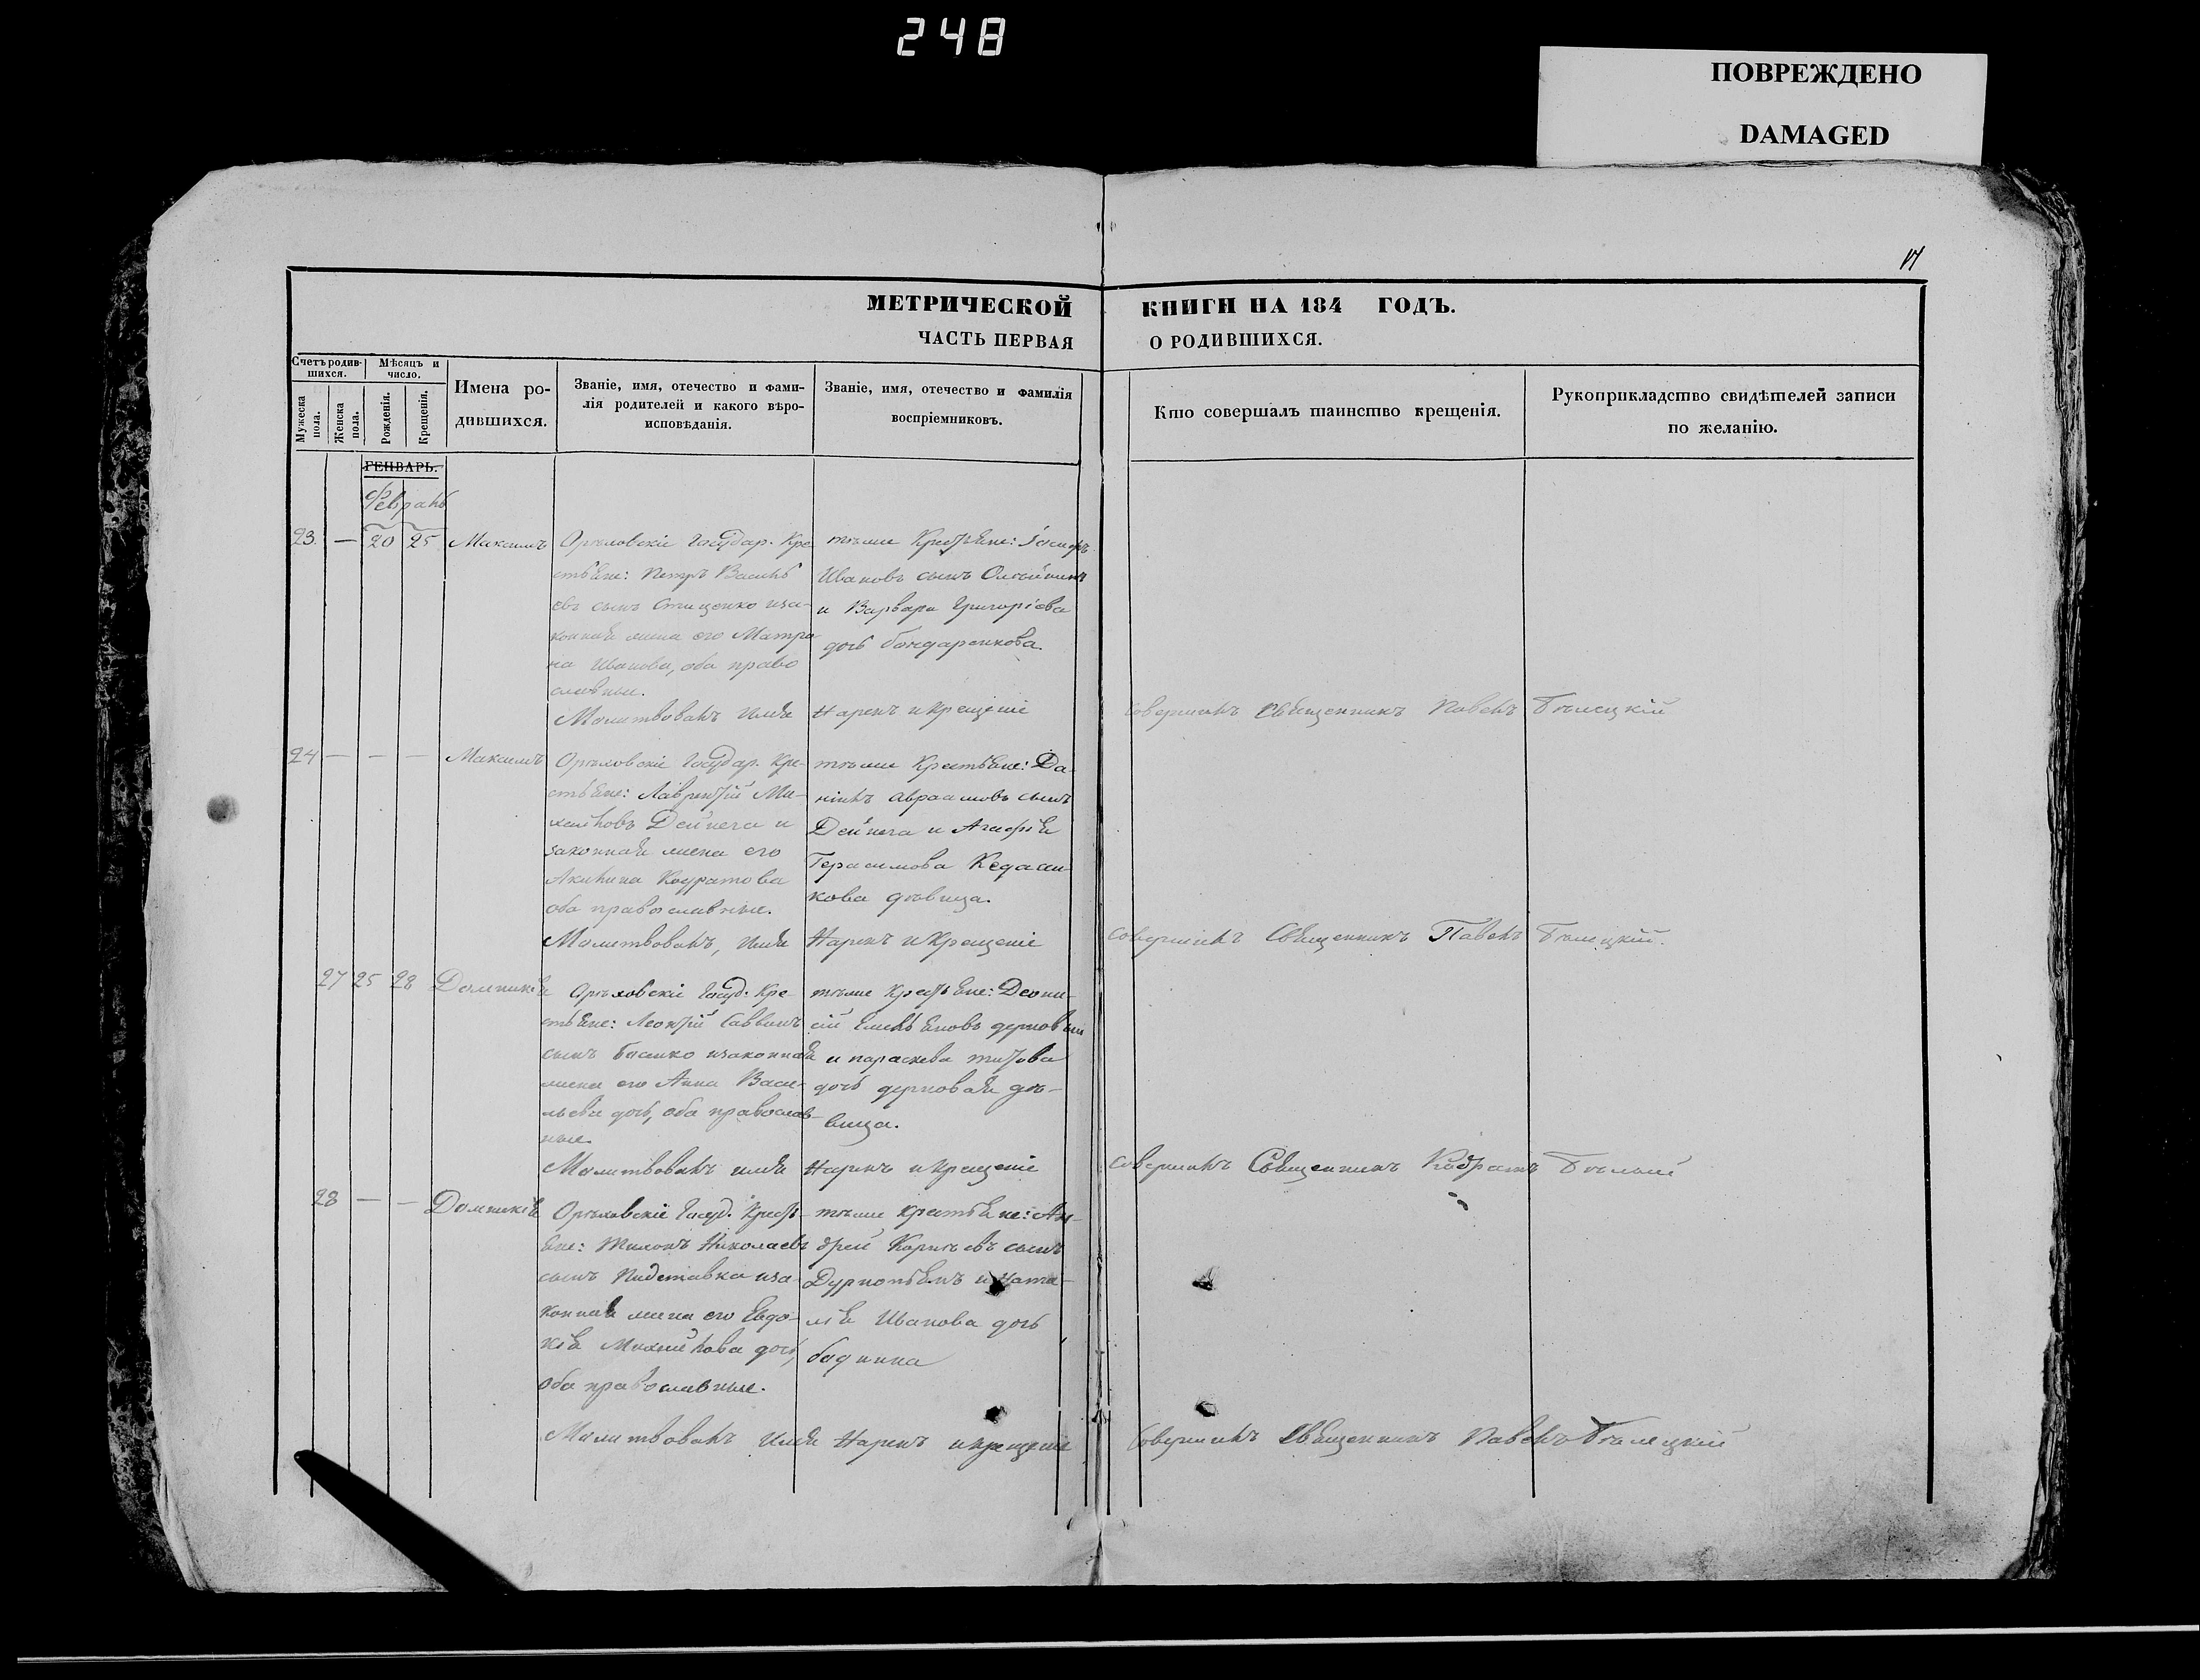 248
ПОВРЕЖДЕНО
DAMAGED
МЕТРИЧЕСКОЙ КНИГИ НА 184 ГОДЪ.
ЧАСТЬ ПЕРВАЯ О РОДИВШИХСЯ.
Счетъ родив-
шихся.
Мѣсяцъ и
число.
Мужеска
пола.
Женска
пола.
Рожденія.
Крещенія.
Имена ро-
дившихся.
Званіе, имя, отечество и фами-
лія родителей и какого вѣро-
исповѣданія.
Званіе, имя, отечество и фамилія
воспріемниковъ.
Кто совершалъ таинство крещенія.
Рукоприкладство свидѣтелей записи
по желанію.
ГЕНВАРЬ.
Февраль
23. — 20 25 Максимъ
Орѣховскіе Государ. Кре
стьяне: Петръ Василь
евъ сынъ Стиценко иза-
конная жена его Матро
на Иванова, оба право
славные.
Молитвовалъ имя
тѣже Крестьяне: Іосифъ
Ивановъ сынъ Олейникъ
и Варвара Григоріева
дочь Бондаренкова.
Нарекъ и Крещеніе
совершилъ Священникъ Павелъ Бѣлецкій
24 — — — Максимъ
Орѣховскіе Государ. Кре-
стьяне: Лаврентій Ми-
хайловъ Дейнега и
законная жена его
Акилина Кодратова
оба православные.
Молитвовалъ, имя
тѣже Крестьяне: Да-
ніилъ Авраамовъ сынъ
Дейнега и Агафія
Герасимова
кова дѣвица.
Нарекъ и Крещеніе
совершилъ Священникъ Павелъ Бѣлецкій.
27 25 28 Домникія
Орѣховскіе Госуд. Кре-
стьяне: Леонтій Саввинъ
сынъ изаконная
жена его Анна Васи-
льева дочь, оба православ-
ные.
Молитвовалъ имя
тѣже Крестьяне: Діони-
сій Емельяновъ
и Параскева Титова
дочь дерновая дѣ-
вица.
Нарекъ и Крещеніе
совершилъ Священникъ Кодратъ
28 — — Домникія
Орѣховскіе Госуд. Кресть-
яне: Николаевъ
сынъ Підставка иза-
конная жена его Евдо-
кія Михайлова дочь,
оба православные.
Молитвовалъ имя
тѣже Крестьяне: Ан-
дрей Корнѣевъ сынъ
и Ната-
лія Иванова дочь
Нарекъ и крещеніе
совершилъ Священникъ Павелъ Бѣлецкій